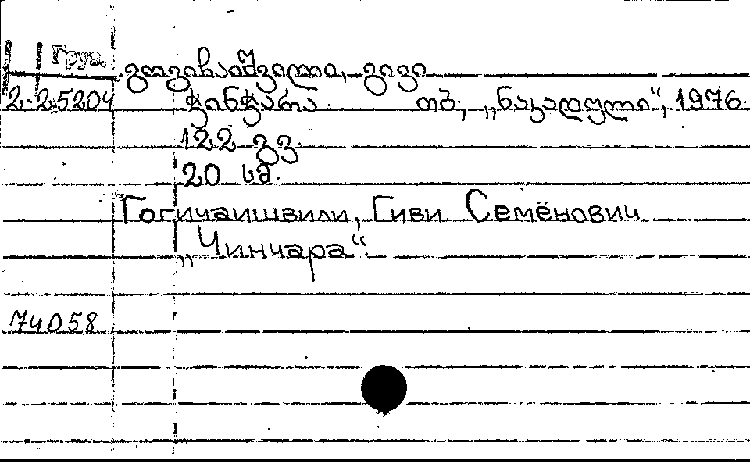 Груз.
გოგიჩაიშვილი, გივი
2-2-5204 ჭინჭარა თბ., „ნაკადული“, 1976.
122 გვ.
20 სმ.
Гогичаишвили, Гиви Семёнович
„Чинчара“.
74058